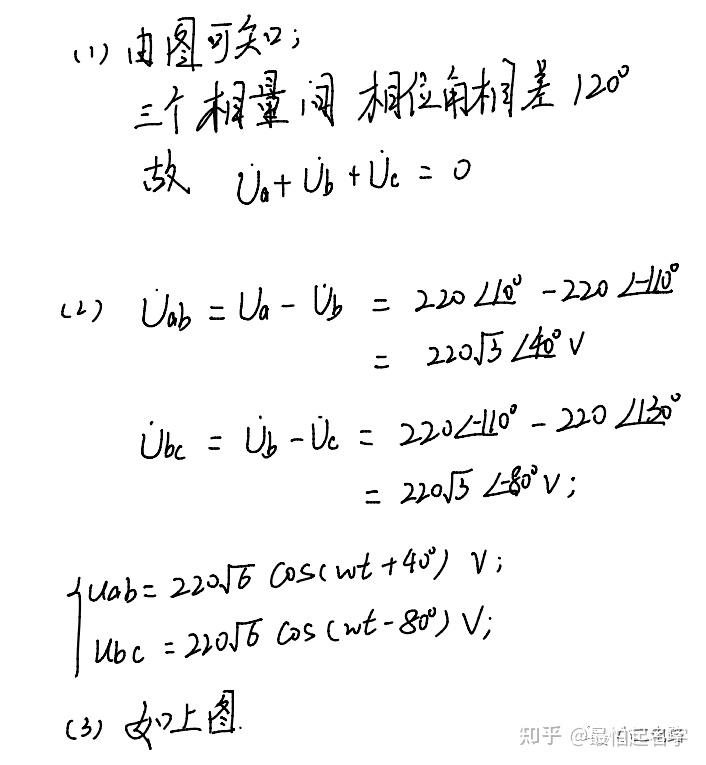 (1) 由图可知;
三个相量间 相位角相差120°
故 U̇a+U̇b+U̇c=0
(2) U̇ab=Ua-U̇b=220∠10°-220∠-110°
=220√3∠40°V
U̇bc=U̇b-U̇c=220∠-110°-220∠130°
=220√3∠-80°V;
{uab=220√6 cos(wt+40°) V;
ubc=220√6 cos(wt-80°) V;
(3) 如上图.
知乎 @最怕起名字